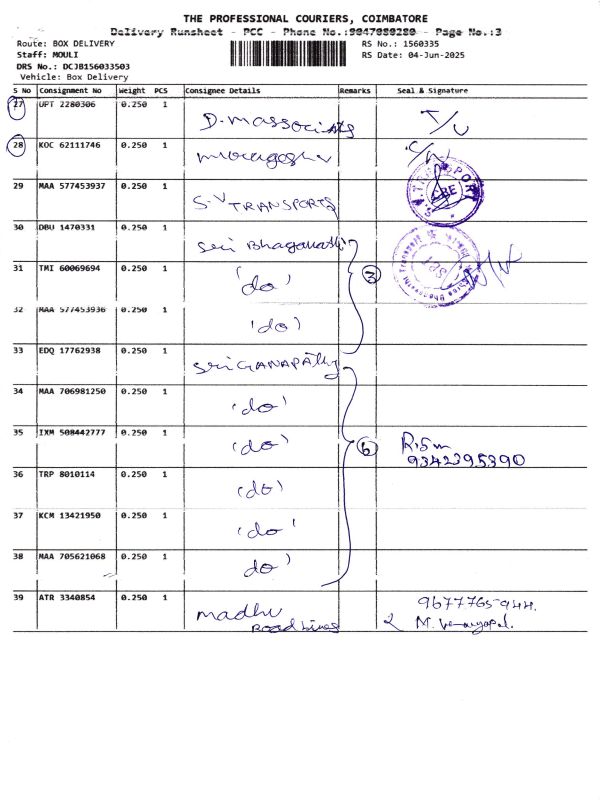 THE PROFESSIONAL COURIERS, COIMBATORE
Delivery Runsheet - PCC - Phone No.:9047080280 - Page No.:3
Route: BOX DELIVERY
Staff: MOULI
DRS No.: DCJB156033503
Vehicle: Box Delivery
RS No.: 1560335
RS Date: 04-Jun-2025
S No Consignment No Weight PCS Consignee Details Remarks Seal & Signature
27 UPT 2280306 0.250 1 D.m associates
28 KOC 62111746 0.250 1
29 MAA 577453937 0.250 1 S.V TRANSPORTS
30 DBU 1470331 0.250 1 Sri Bhagavathi
31 TMI 60069694 0.250 1 'do' 3
32 MAA 577453936 0.250 1 'do'
33 EDQ 17762938 0.250 1 Sri GANAPATHY
34 MAA 706981250 0.250 1 'do'
35 IXM 508442777 0.250 1 'do' 6 R.S m
9342295390
36 TRP 8010114 0.250 1 'do'
37 KCM 13421950 0.250 1 'do'
38 MAA 705621068 0.250 1 do'
39 ATR 3340854 0.250 1 madhu Road Lines 9677765944.
M. Venugopal.